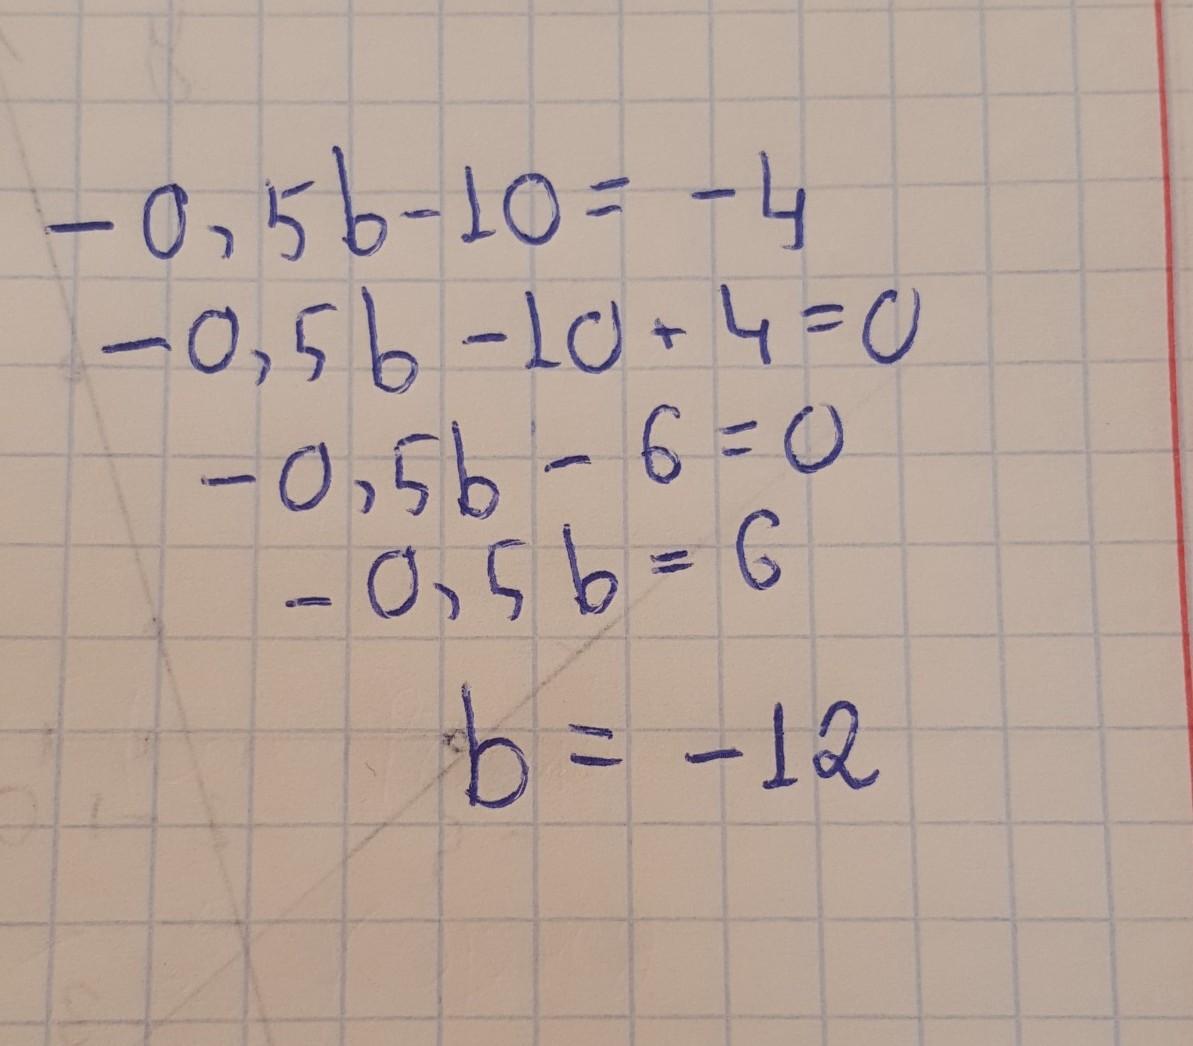 -0,5b-10= -4
-0,5b -10+4=0
-0,5b - 6=0
-0,5b = 6
b = -12